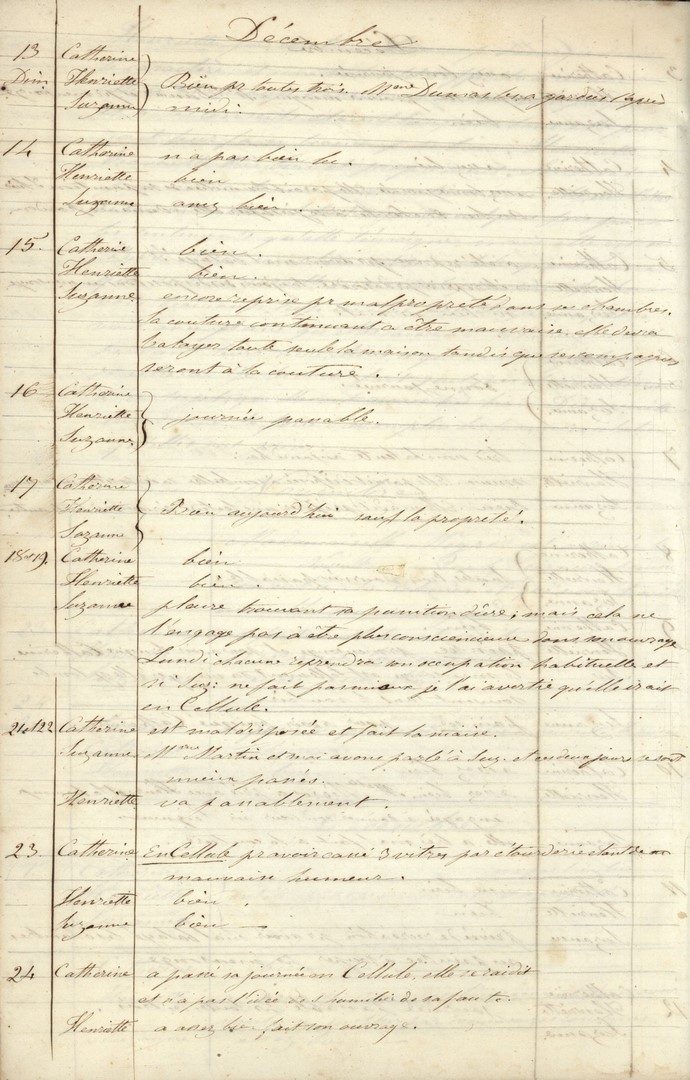 Décembre
13 Catherine
Dim Henriette Bien pr toutes trois. Mme Dumas les a gardées l'après
Suzanne midi.
14 Catherine n'a pas bien lu.
Henriette bien
Suzanne assez bien.
15. Catherine bien.
Henriette bien.
Suzanne encore reprise pr malpropreté dans sa chambre.
la couture continuant a être mauvaise, elle devra
balayer toute seule la maison tandis que ses compagnes
seront à la couture.
16 Catherine
Henriette journée passable.
Suzanne
17 Catherine
Henriette Bien aujourd'hui sauf la propreté.
Suzanne
18et19. Catherine bien.
Henriette bien.
Suzanne pleure trouvant sa punition dure; mais cela ne
l'engage pas à être plus consciencieuse dans son ouvrage
Lundi chacune reprendra son occupation habituelle et
si Suz: ne fait pas mieux je l'ai avertie qu'elle irait
en Cellule.
21et22 Catherine est mal disposée et fait la niaise.
Suzanne Mme Martin et moi avons parlé à Suz. et ces deux jours se sont
mieux passés.
Henriette va passablement.
23 Catherine En Cellule pr avoir cassé 3 vitres par étourderie étant de
mauvaise humeur.
Henriette bien.
Suzanne bien
24 Catherine a passé sa journée en Cellule, elle se raidit
et n'a pas l'idée de s'humilier de sa faute.
Henriette a assez bien fait son ouvrage.